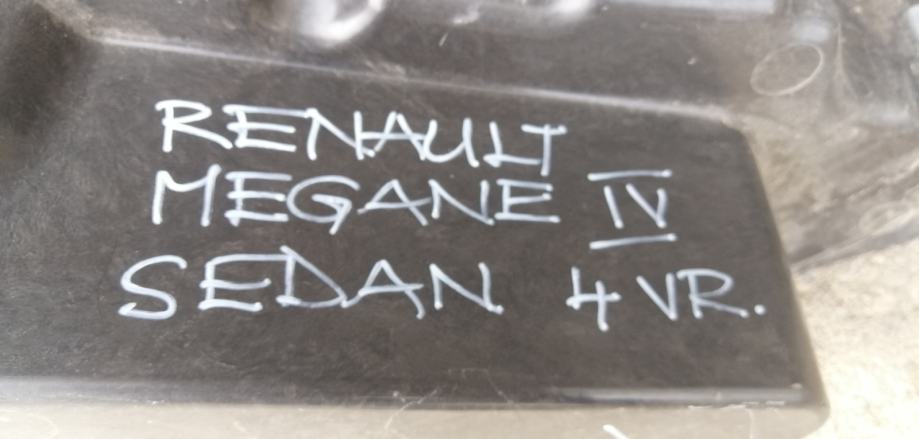 RENAULT
MEGANE IV
SEDAN 4 VR.